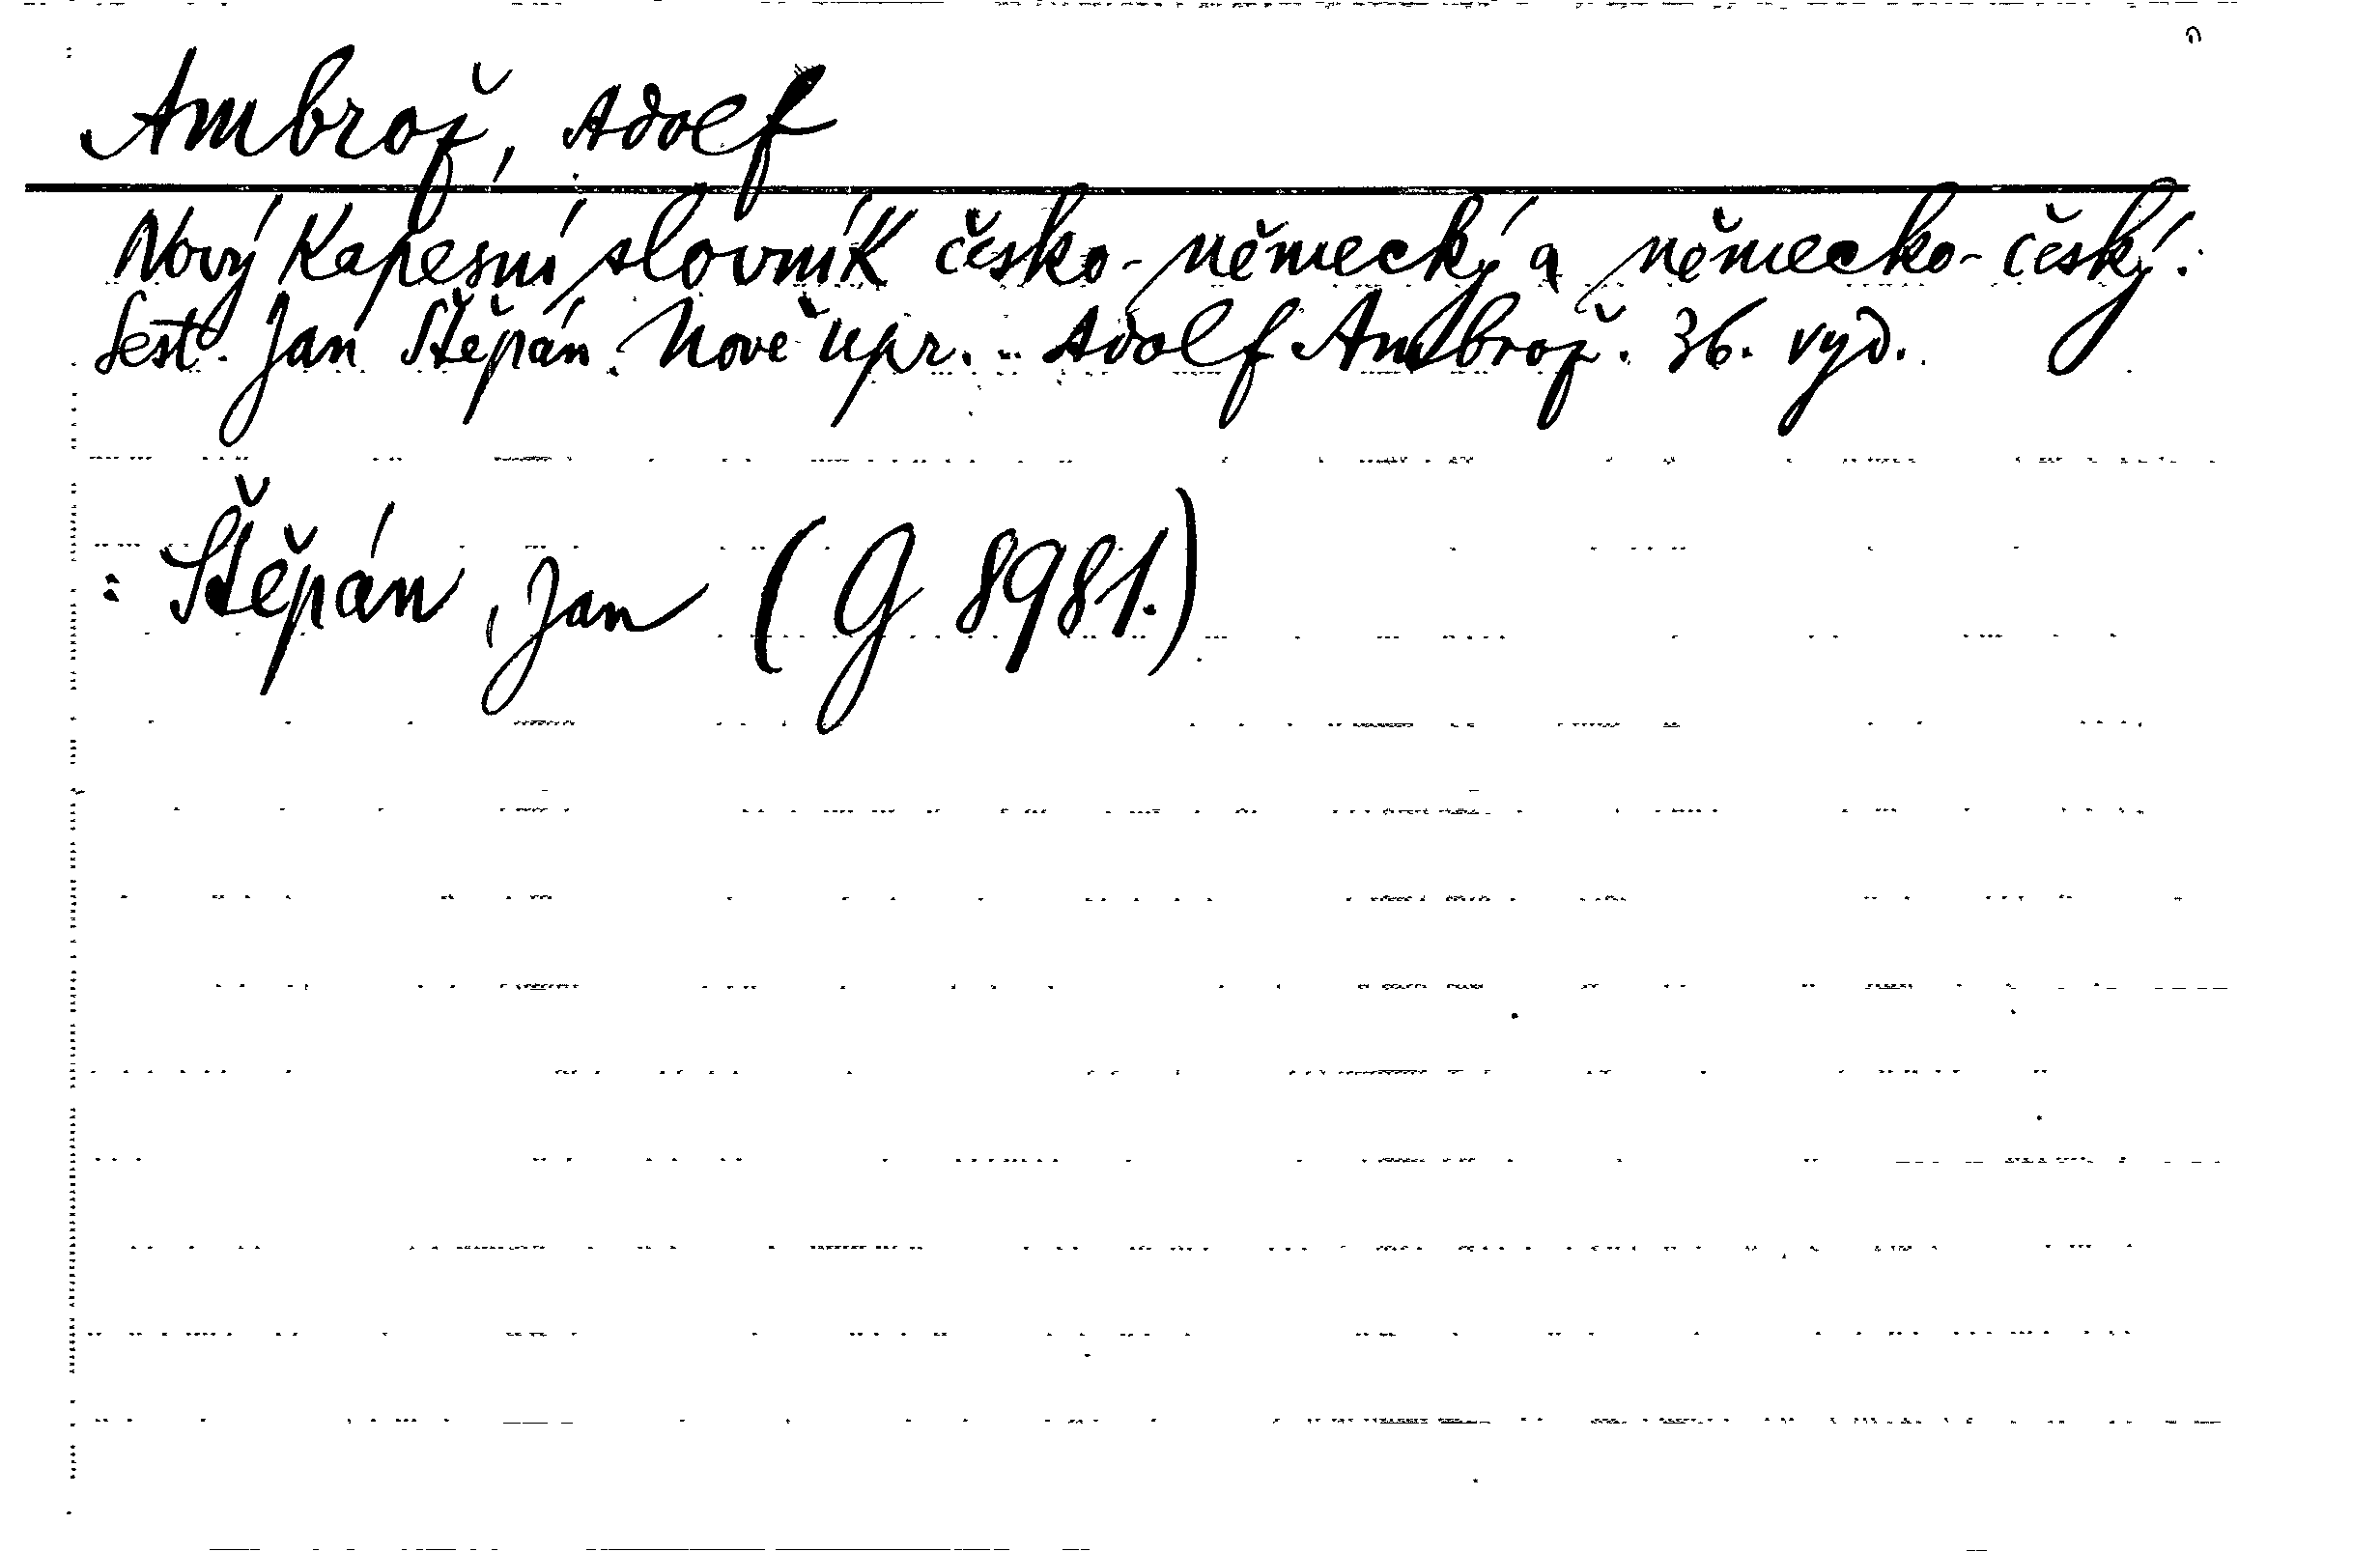 Ambrož, Adolf
Nový kapesní slovník česko-německý a německo-český.
Sest. Jan Štěpán. Nově upr. .. Adolf Ambrož. 36. vyd.
: Štěpán, Jan (G 8981.)